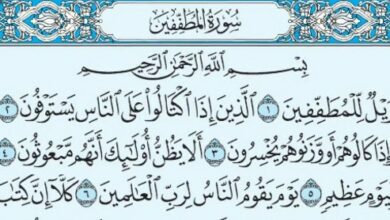 سُورَةُ المُطَفِّفِينَ
بِسْمِ اللَّهِ الرَّحْمَٰنِ الرَّحِيمِ
يْلٌ لِّلْمُطَفِّفِينَ ١ الَّذِينَ إِذَا اكْتَالُوا عَلَى النَّاسِ يَسْتَوْفُونَ ٢
إِذَا كَالُوهُمْ أَو وَّزَنُوهُمْ يُخْسِرُونَ ٣ أَلَا يَظُنُّ أُولَٰئِكَ أَنَّهُم مَّبْعُوثُونَ ٤
وْمٍ عَظِيمٍ ٥ يَوْمَ يَقُومُ النَّاسُ لِرَبِّ الْعَالَمِينَ ٦ كَلَّا إِنَّ كِتَابَ